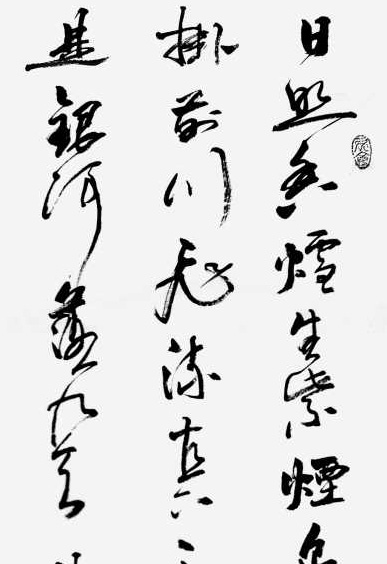 日照香爐生紫煙
掛前川飛流直下
是銀河落九天